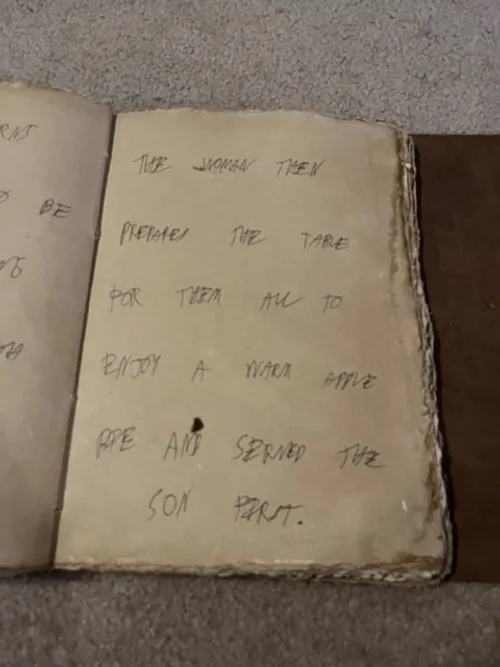 BE
THE WOMAN THEN
PREPARES THE TABLE
FOR THEM ALL TO
ENJOY A WARM APPLE
PIE AND SERVED THE
SON FIRST.